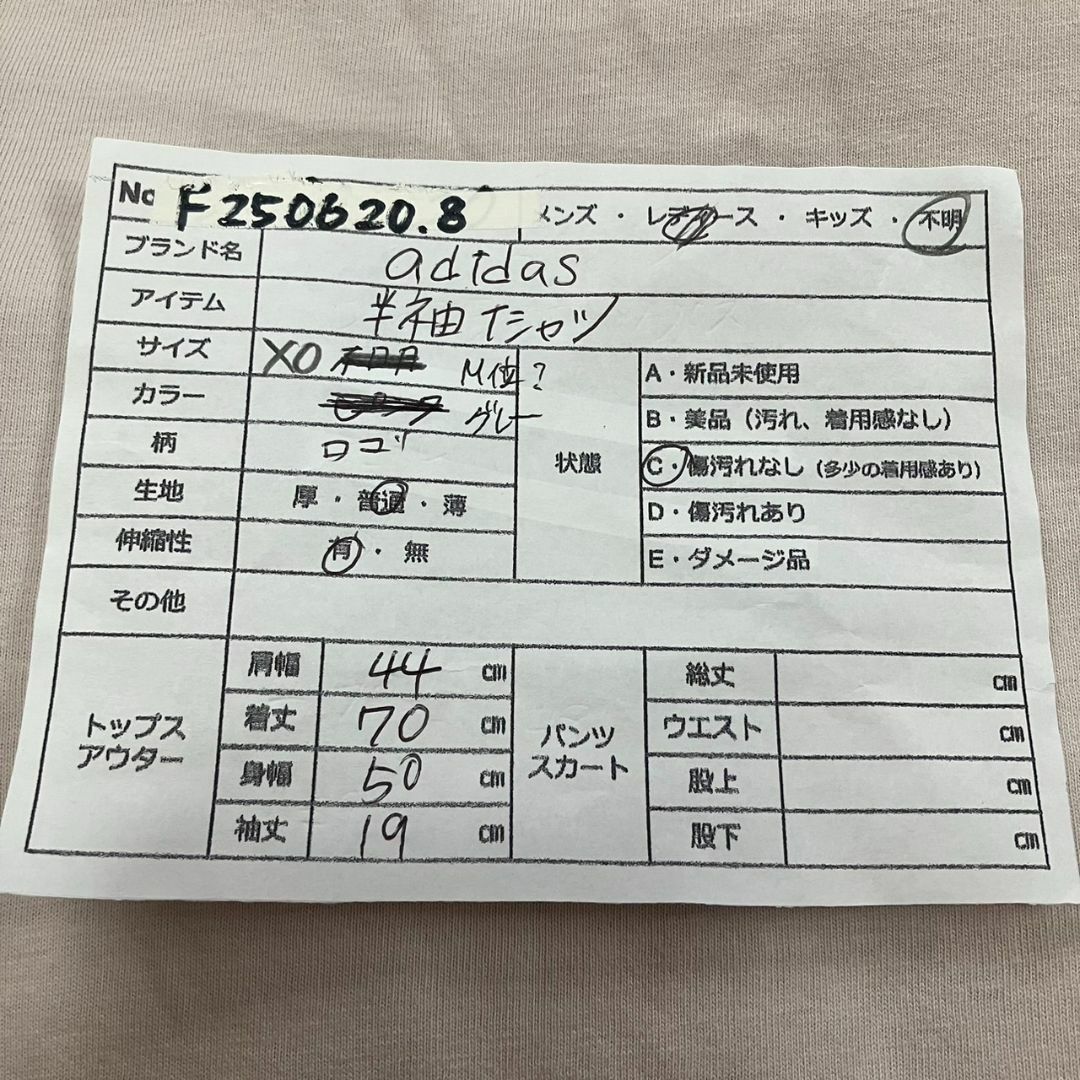 No F250620.8 メンズ・レディース・キッズ・不明
ブランド名 adidas
アイテム 半袖Tシャツ
サイズ XO M位?
カラー グレー
柄 ロゴ
生地 厚・普通・薄
伸縮性 有・無
状態
A・新品未使用
B・美品(汚れ、着用感なし)
C・傷汚れなし(多少の着用感あり)
D・傷汚れあり
E・ダメージ品
その他
トップス
アウター
肩幅 44 cm
着丈 70 cm
身幅 50 cm
袖丈 19 cm
パンツ
スカート
総丈 cm
ウエスト cm
股上 cm
股下 cm